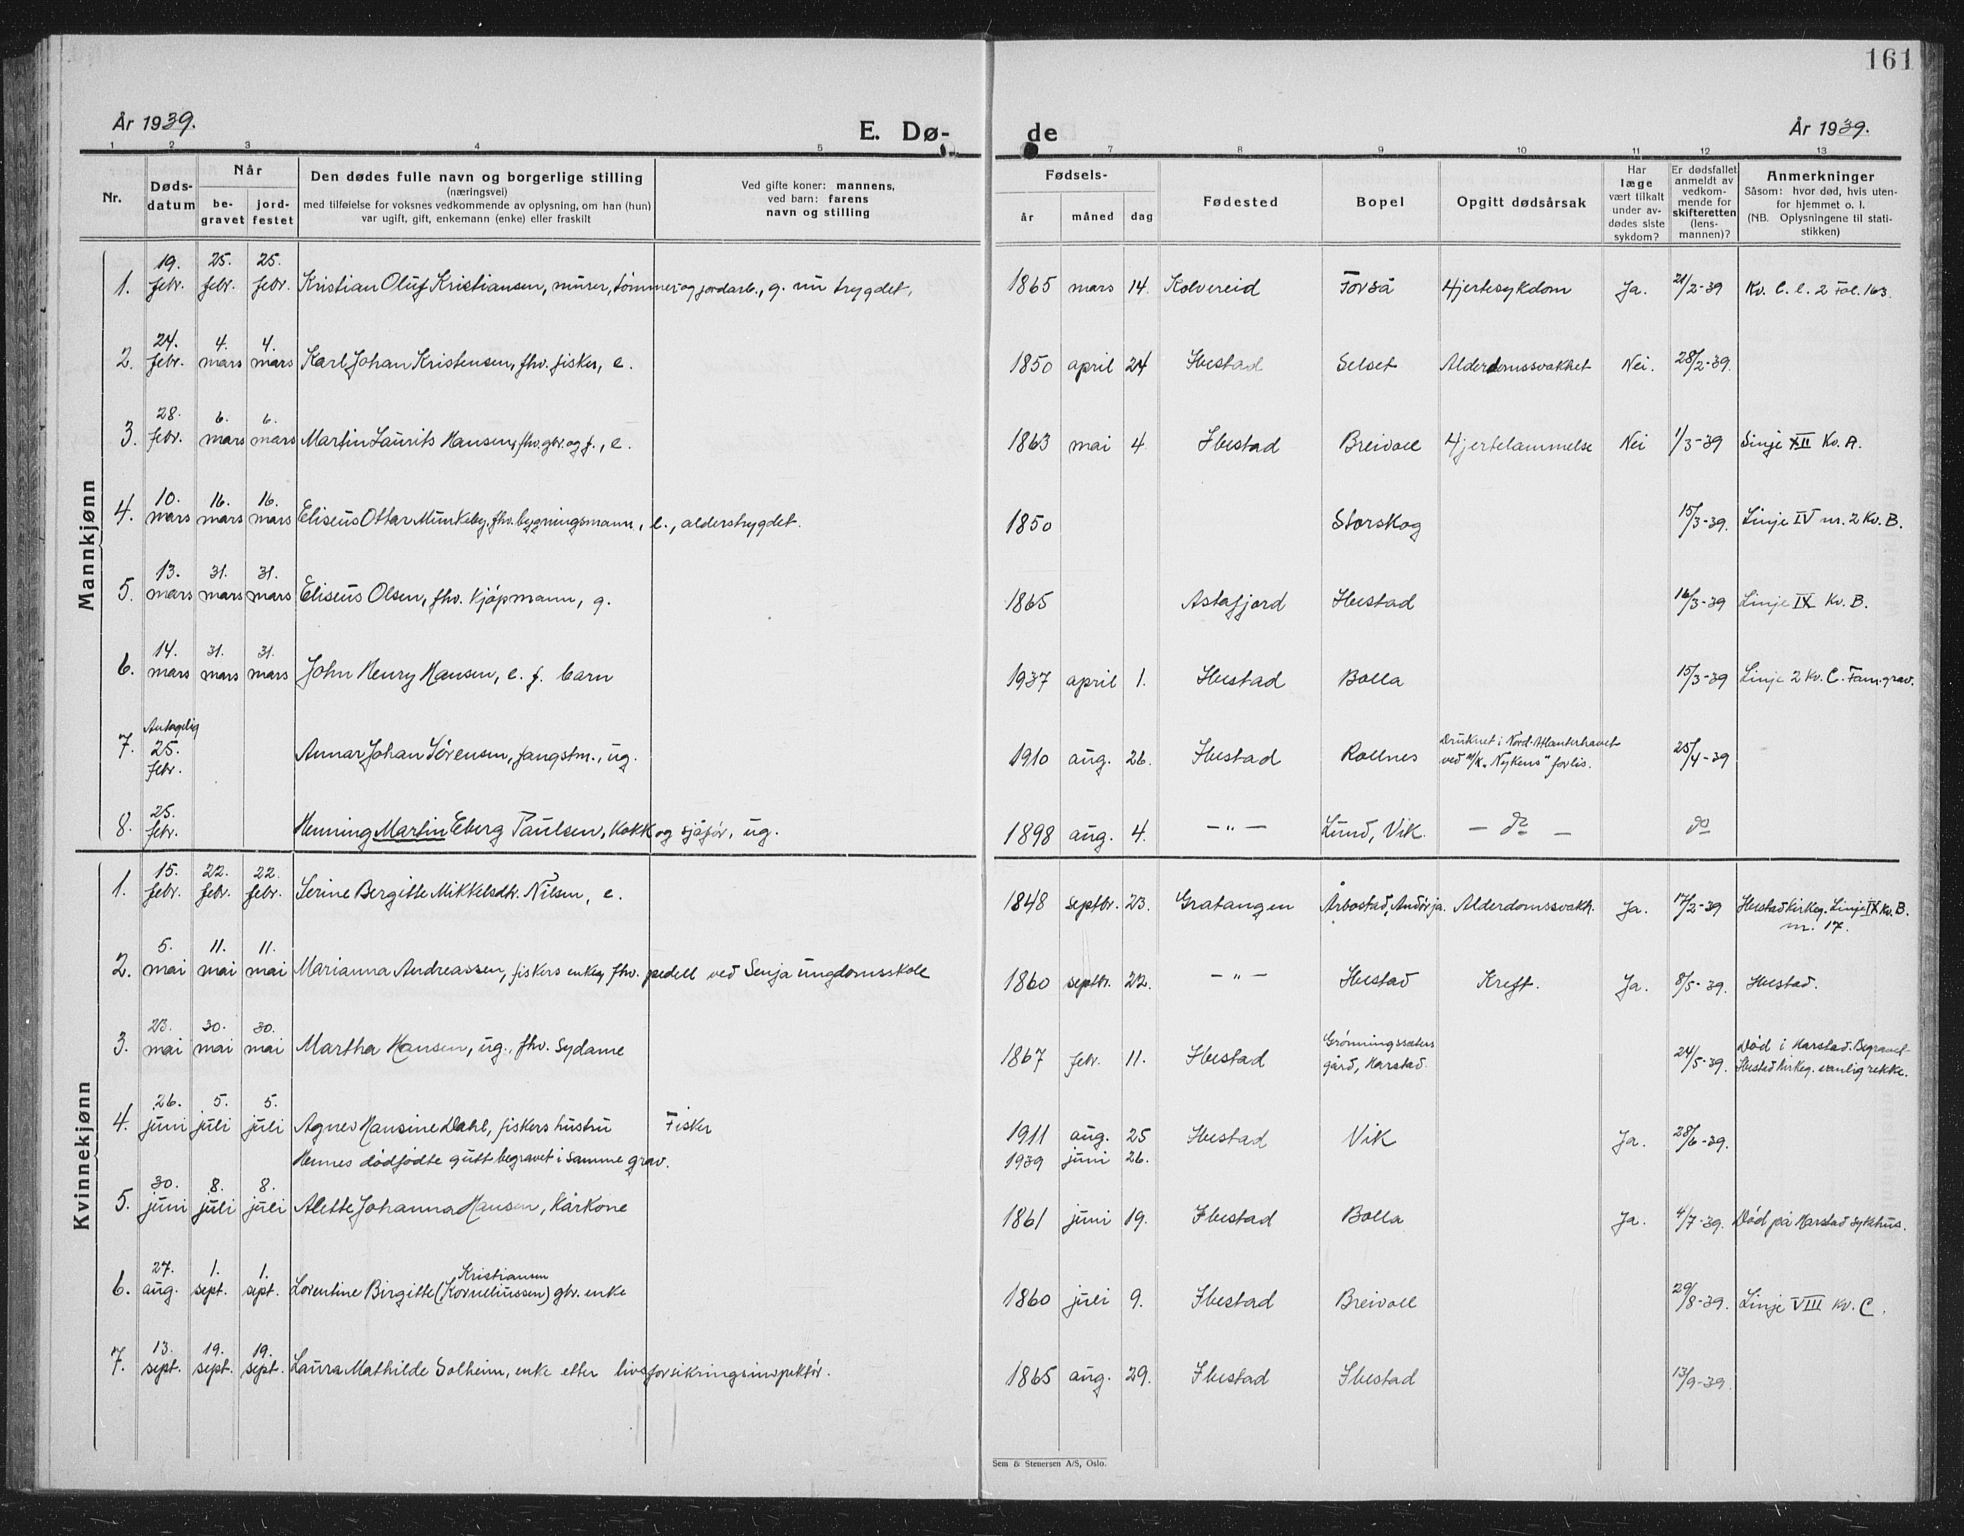 161
År 1939. E. Dø- de År 1939.
1 2 3 4 5 7 8 9 10 11 12 13
Nr. Døds-datum Når be-gravet jord-festet Den dødes fulle navn og borgerlige stilling (næringsvei) med tilføielse for voksnes vedkommende av oplysning, om han (hun) var ugift, gift, enkemann (enke) eller fraskilt Ved gifte koner: mannens, ved barn: farens navn og stilling Fødsels- år måned dag Fødested Bopel Opgitt dødsårsak Har læge vært tilkalt under av-dødes siste sykdom? Er dødsfallet anmeldt av vedkom-mende for skifteretten (lens-mannen)? Anmerkninger Såsom: hvor død, hvis uten-for hjemmet o. l. (NB. Oplysningene til stati-stikken)
Mannkjønn
1. 19. febr. 25. febr. 25. febr. Kristian Oluf Kristiansen, murer, tømmer- og jordarb., g. nu trygdet, 1865 mars 14. Kolvereid Forså Hjertesykdom Ja. 21/2-39 Kv. C. l. 2 Fol. 163.
2. 24. febr. 4. mars 4. mars Karl Johan Kristensen, fhv. fisker, e. 1850 april 24 Ibestad Selset Alderdomssvakhet Nei. 28/2-39.
3. 28. febr. 6. mars 6. mars Martin Laurits Hansen, fhv. gbr. og f., e. 1863 mai 4. Ibestad Breivoll Hjertelammelse Nei 1/3-39 Linje XII Kv. A.
4. 10. mars 16. mars 16. mars Eliseus Ottar Munkeby, fhv. bygningsmann, e., alderstrygdet. 1850 Storskog 15/3-39. Linje IV nr. 2 Kv. B.
5. 13. mars 31. mars 31. mars Eliseus Olsen, fhv. kjøpmann, g. 1865 Astafjord Ibestad 16/3-39 Linje IX Kv. B.
6. 14. mars 31. mars 31. mars John Henry Hansen, e. f. barn 1937 april 1. Ibestad Bolla 15/3-39 Linje 2 Kv. C. Fam.grav.
7. Antagelig 25. febr. Annar Johan Sørensen, fangstm., ug. 1910 aug. 26. Ibestad Rollnes Druknet i Nord-Atlanterhavet ved M/K "Nyken s" forlis. 25/4-39
8. 25. febr. Henning Martin Eberg Paulsen, kokk og sjåfør, ug. 1898 aug. 4. — " — Lund, Vik. — do — do
Kvinnekjønn
1. 15. febr. 22. febr. 22. febr. Serine Bergitte Mikkelsdtr. Nilsen, e. 1848 septbr. 23. Gratangen Årbostad, Andørja. Alderdomssvakh. Ja. 17/2-39 Ibestad kirkeg. Linje IX Kv. B. nr. 17.
2. 5. mai 11. mai 11. mai Marianna Andreassen, fiskers enke, fhv. pedell ved Senja ungdomsskole 1860 septbr. 22. — " — Ibestad Kreft. Ja. 8/5-39. Ibestad.
3. 23. mai 30. mai 30. mai Martha Hansen, ug., fhv. sydame 1867 febr. 11. Ibestad Grønningssæters gård, Harstad. 24/5-39. Død i Harstad. Begravet Ibestad kirkeg. vanlig rekke.
4. 26. juni 5. juli 5. juli Agnes Hansine Dahl, fiskers hustru Fisker 1911 aug. 25 Ibestad Vik Ja. 28/6-39.
Hennes dødfødte gutt begravet i samme grav. 1939 juni 26.
5. 30. juni 8. juli 8. juli Alette Johanna Hansen, kårkone 1861 juni 19. Ibestad Bolla Ja. 4/7-39. Død på Harstad sykehus.
6. 27. aug. 1. sept. 1. sept. Lorentine Birgitte (Korneliussen) Kristiansen gbr. enke 1860 juli 9. Ibestad Breivoll 29/8-39. Linje VIII Kv. C.
7. 13. sept. 19. sept. 19. sept. Laura Mathilde Solheim, enke etter livsforsikringsinspektør. 1865 aug. 29. Ibestad Ibestad 13/9-39.
Sem & Stenersen A/S, Oslo.